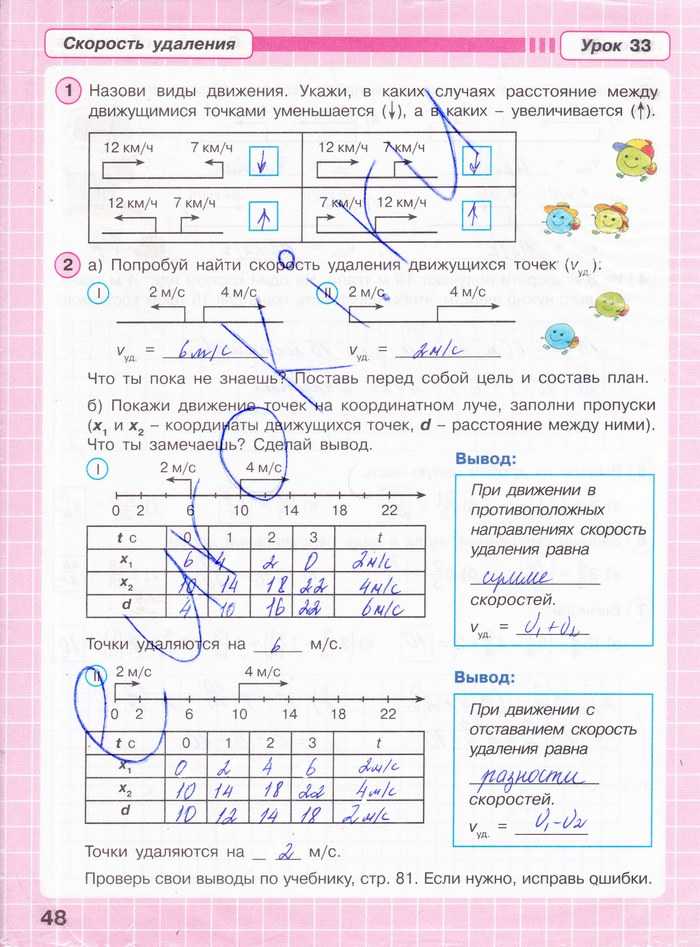 Скорость удаления
Урок 33
1 Назови виды движения. Укажи, в каких случаях расстояние между
движущимися точками уменьшается (↓), а в каких – увеличивается (↑).
12 км/ч 7 км/ч ↓ 12 км/ч 7 км/ч ↓
12 км/ч 7 км/ч ↑ 7 км/ч 12 км/ч ↑
2 а) Попробуй найти скорость удаления движущихся точек (v уд.):
I 2 м/с 4 м/с II 2 м/с 4 м/с
v уд. = 6 м/с v уд. = 2 м/с
Что ты пока не знаешь? Поставь перед собой цель и составь план.
б) Покажи движение точек на координатном луче, заполни пропуски
(x₁ и x₂ – координаты движущихся точек, d – расстояние между ними).
Что ты замечаешь? Сделай вывод.
I 2 м/с 4 м/с
0 2 6 10 14 18 22
t с 0 1 2 3 t
x₁ 6 4 2 0 2м/с
x₂ 10 14 18 22 4м/с
d 4 10 16 22 6м/с
Точки удаляются на 6 м/с.
Вывод:
При движении в
противоположных
направлениях скорость
удаления равна
сумме
скоростей.
v уд. = v₁+v₂
II 2 м/с 4 м/с
0 2 6 10 14 18 22
t с 0 1 2 3 t
x₁ 0 2 4 6 2м/с
x₂ 10 14 18 22 4м/с
d 10 12 14 18 2м/с
Точки удаляются на 2 м/с.
Вывод:
При движении с
отставанием скорость
удаления равна
разности
скоростей.
v уд. = v₁-v₂
Проверь свои выводы по учебнику, стр. 81. Если нужно, исправь ошибки.
48